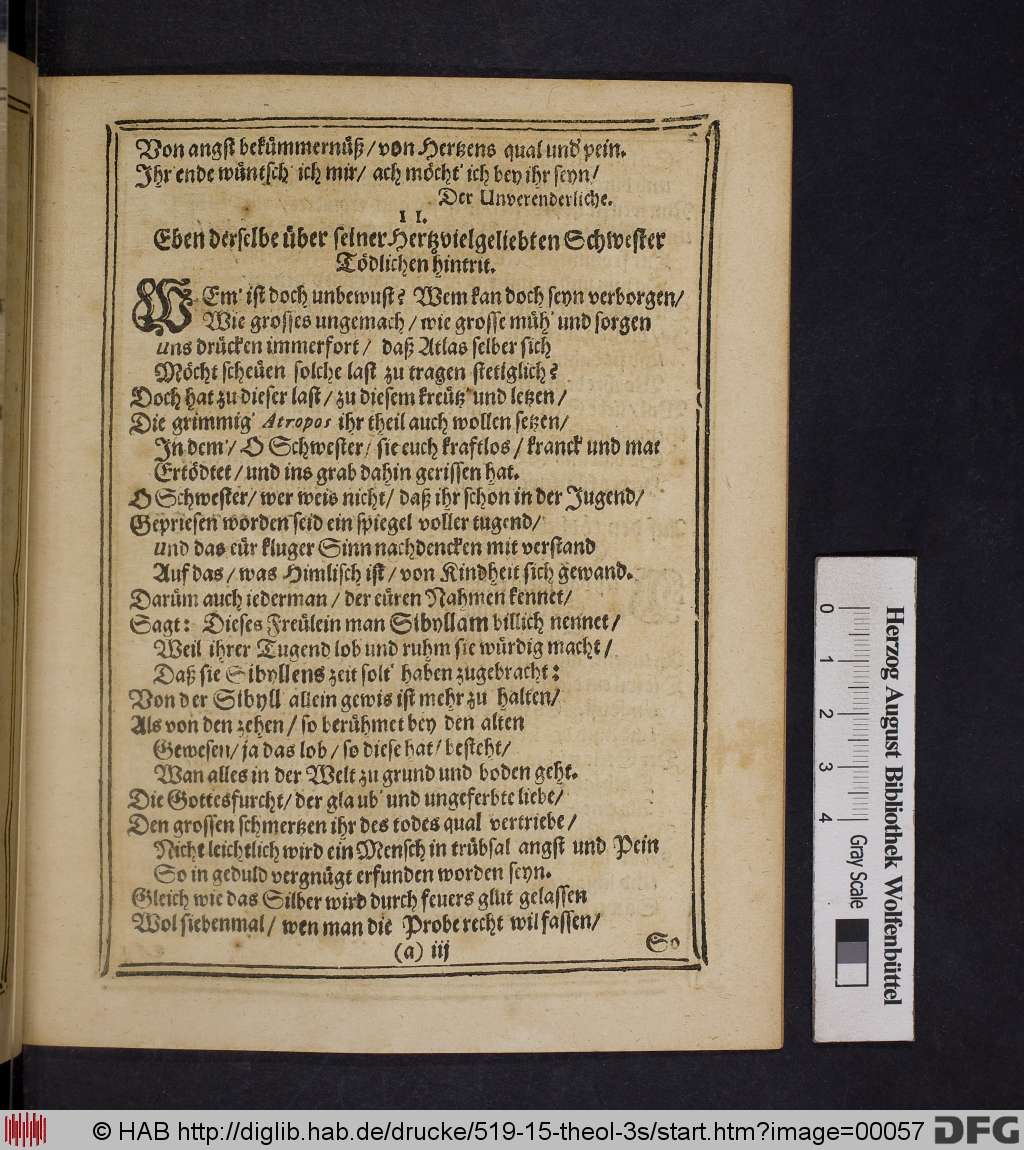 Von angst bekümmernüß / von Hertzens qual und pein.
Ihr ende wüntsch' ich mir / ach möcht' ich bey ihr seyn /
Der Unverenderliche.
II.
Eben derselbe über seiner Hertzvielgeliebten Schwester
Tödlichen hintrit.
WEm' ist doch unbewust? Wem kan doch seyn verborgen /
Wie grosses ungemach / wie grosse müh' und sorgen
uns drücken immerfort / daß Atlas selber sich
Möcht scheüen solche last zu tragen stetiglich?
Doch hat zu dieser last / zu diesem kreütz' und letzen /
Die grimmig' Atropos ihr theil auch wollen setzen /
In dem' / O Schwester / sie euch kraftlos / kranck und mat
Ertödtet / und ins grab dahin gerissen hat.
O Schwester / wer weis nicht / daß ihr schon in der Jugend /
Gepriesen worden seid ein spiegel voller tugend /
und das eür kluger Sinn nachdencken mit verstand
Auf das / was Himlisch ist / von Kindheit sich gewand.
Darüm auch iederman / der eüren Nahmen kennet /
Sagt: Dieses Freülein man Sibyllam billich nennet /
Weil ihrer Tugend lob und ruhm sie würdig macht /
Daß sie Sibyllens zeit solt' haben zugebracht:
Von der Sibyll allein gewis ist mehr zu halten /
Als von den zehen / so berühmet bey den alten
Gewesen / ja das lob / so diese hat / besteht /
Wan alles in der Welt zu grund und boden geht.
Die Gottesfurcht / der glaub' und ungeferbte liebe /
Den grossen schmertzen ihr des todes qual vertriebe /
Nicht leichtlich wird ein Mensch in trübsal angst und Pein
So in geduld vergnügt erfunden worden seyn.
Gleich wie das Silber wird durch feuers glut gelassen
Wol siebenmal / wen man die Probe recht wil fassen /
(a) iij
So
0 1 2 3 4
Herzog August Bibliothek Wolfenbüttel
Gray Scale
© HAB http://diglib.hab.de/drucke/519-15-theol-3s/start.htm?image=00057
DFG